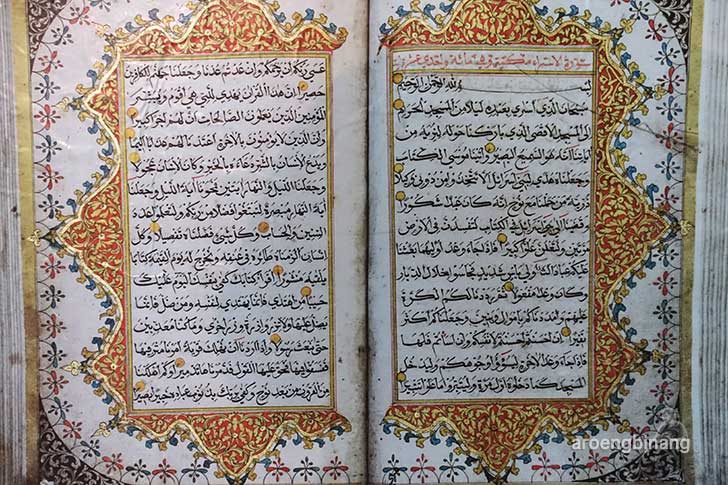 سورة الاسراء مكية وهي مائة واحدى عشرة
بسم الله الرحمن الرحيم
سبحان الذي اسرى بعبده ليلا من المسجد الحرام
الى المسجد الاقصى الذي باركنا حوله لنريه من
اياتنا انه هو السميع البصير واتينا موسى الكتاب
وجعلناه هدى لبني اسرائيل الا تتخذوا من دوني وكيلا
ذرية من حملنا مع نوح انه كان عبدا شكورا
وقضينا الى بني اسرائيل في الكتاب لتفسدن في الارض
مرتين ولتعلن علوا كبيرا فاذا جاء وعد اوليهما بعثنا
عليكم عبادا لنا اولي باس شديد فجاسوا خلال الديار
وكان وعدا مفعولا ثم رددنا لكم الكرة
عليهم وامددناكم باموال وبنين وجعلناكم اكثر
نفيرا ان احسنتم احسنتم لانفسكم وان اساتم فلها
فاذا جاء وعد الاخرة ليسوؤا وجوهكم وليدخلوا
المسجد كما دخلوه اول مرة وليتبروا ما علوا تتبيرا
عسى ربكم ان يرحمكم وان عدتم عدنا وجعلنا جهنم للكافرين
حصيرا ان هذا القران يهدي للتي هي اقوم ويبشر
المؤمنين الذين يعملون الصالحات ان لهم اجرا كبيرا
وان الذين لا يؤمنون بالاخرة اعتدنا لهم عذابا اليما
ويدع الانسان بالشر دعاءه بالخير وكان الانسان عجولا
وجعلنا الليل والنهار ايتين فمحونا اية الليل وجعلنا
اية النهار مبصرة لتبتغوا فضلا من ربكم ولتعلموا عدد
السنين والحساب وكل شيء فصلناه تفصيلا وكل
انسان الزمناه طائره في عنقه ونخرج له يوم القيمة كتابا
يلقاه منشورا اقرا كتابك كفى بنفسك اليوم عليك
حسيبا من اهتدى فانما يهتدي لنفسه ومن ضل فانما
يضل عليها ولا تزر وازرة وزر اخرى وما كنا معذبين
حتى نبعث رسولا واذا اردنا ان نهلك قرية امرنا مترفيها
ففسقوا فيها فحق عليها القول فدمرناها تدميرا وكم اهلكنا
من القرون من بعد نوح وكفى بربك بذنوب عباده خبيرا بصيرا
aroengbinang